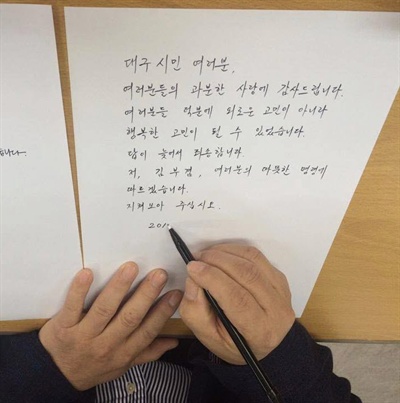 대구 시민 여러분,
여러분들의 과분한 사랑에 감사드립니다.
여러분들 덕분에 외로운 고민이 아니라
행복한 고민이 될 수 있었습니다.
답이 늦어서 죄송합니다.
저, 김부겸, 여러분의 따뜻한 명령에
따르겠습니다.
지켜보아 주십시오.
201
니다.